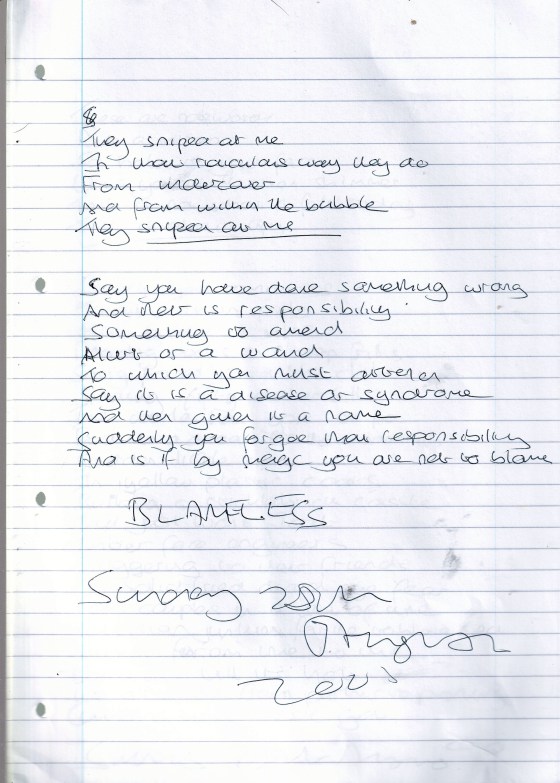 &
They sniped at me
In that ridiculous way they do
From undercover
And from within the bubble
They sniped at me
Say you have done something wrong
And that is responsibility
Something to amend
of a wound
To which you must attend
Say it is a disease or syndrome
And then given it a name
Suddenly you forgo that responsibility
And as if by magic you are not to blame
BLAMELESS
Sunday 28th
August